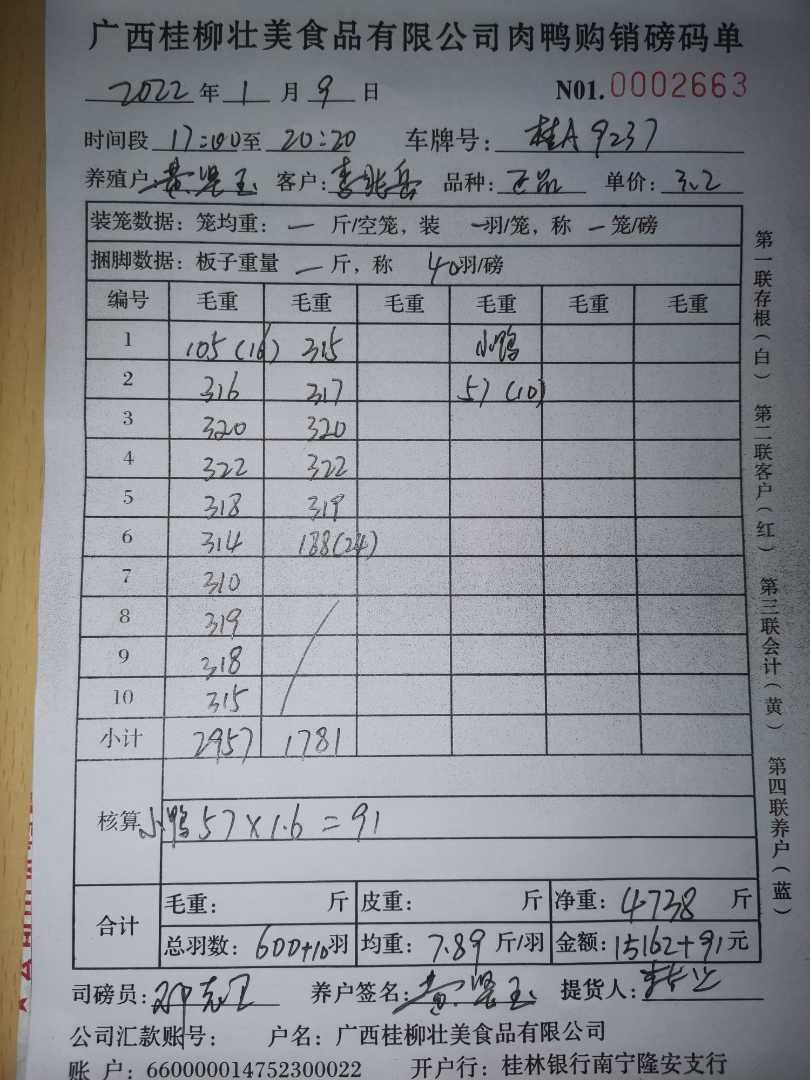 广西桂柳壮美食品有限公司肉鸭购销磅码单
2022 年 1 月 9 日 N01. 0002663
时间段 17:00 至 20:20 车牌号: 桂A9237
养殖户: 黄坚玉 客户: 品种: 正品 单价: 3.2
装笼数据: 笼均重: 一 斤/空笼, 装 一羽/笼, 称 一笼/磅
捆脚数据: 板子重量 一 斤, 称 40羽/磅
编号 毛重 毛重 毛重 毛重 毛重 毛重
1 105(16) 315 小鸭
2 316 317 57(10)
3 320 320
4 322 322
5 318 319
6 314 188(24)
7 310
8 319
9 318
10 315
小计 2957 1781
核算 小鸭57×1.6=91
合计 毛重: 斤 皮重: 斤 净重: 4738 斤
总羽数: 600+10羽 均重: 7.89 斤/羽 金额: 15162+91元
司磅员: 养户签名: 黄坚玉 提货人:
公司汇款账号: 户名: 广西桂柳壮美食品有限公司
账 户: 660000014752300022 开户行: 桂林银行南宁隆安支行
第一联存根(白) 第二联客户(红) 第三联会计(黄) 第四联养户(蓝)